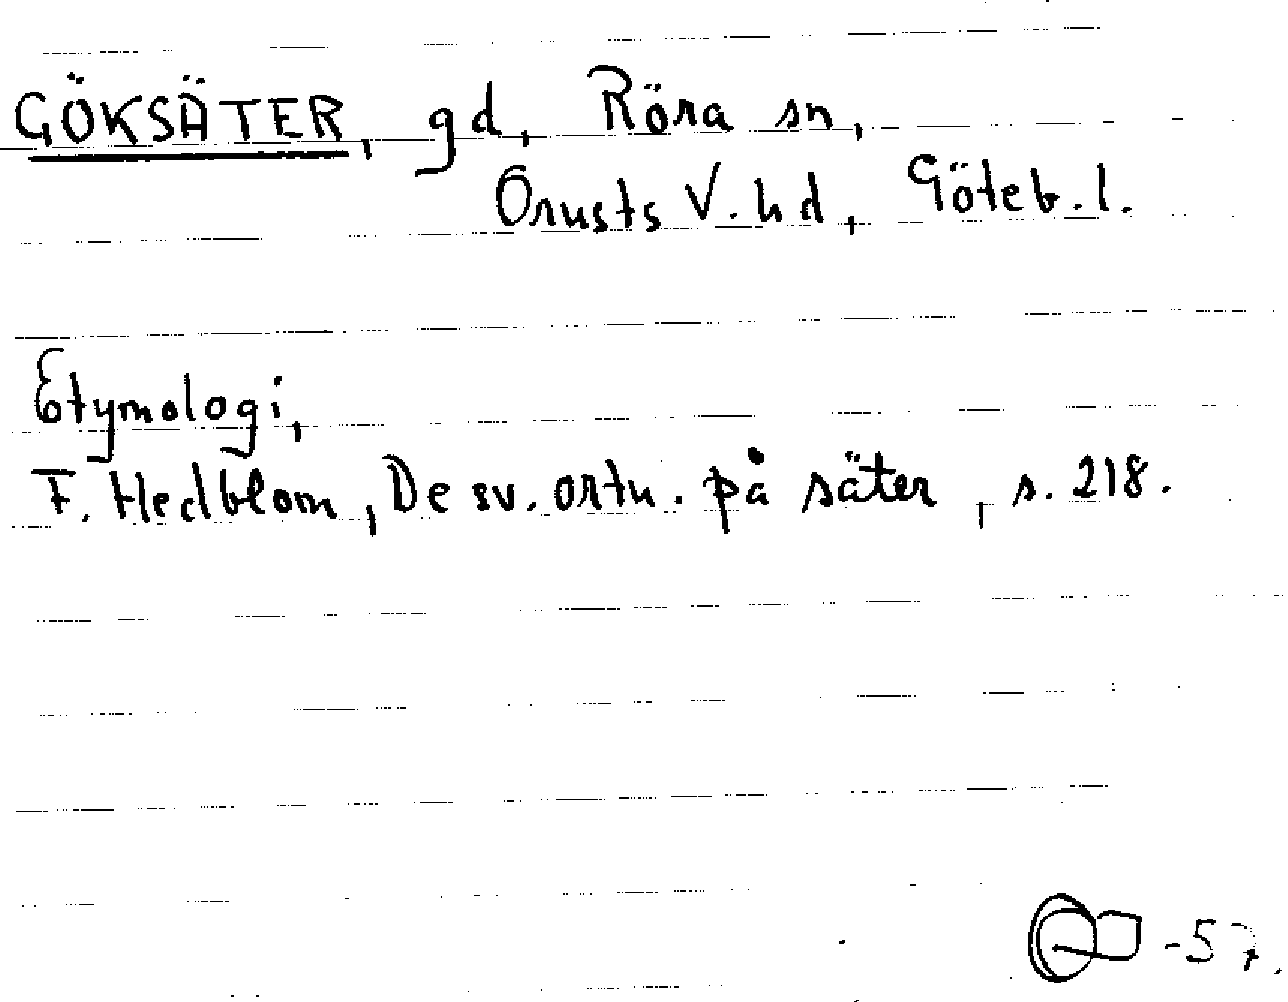 GÖKSÄTER, gd, Röra sn,
Orusts V. hd, Göteb. l.
Etymologi,
F. Hedblom, De sv. ortn. på säter, s. 218.
-57.